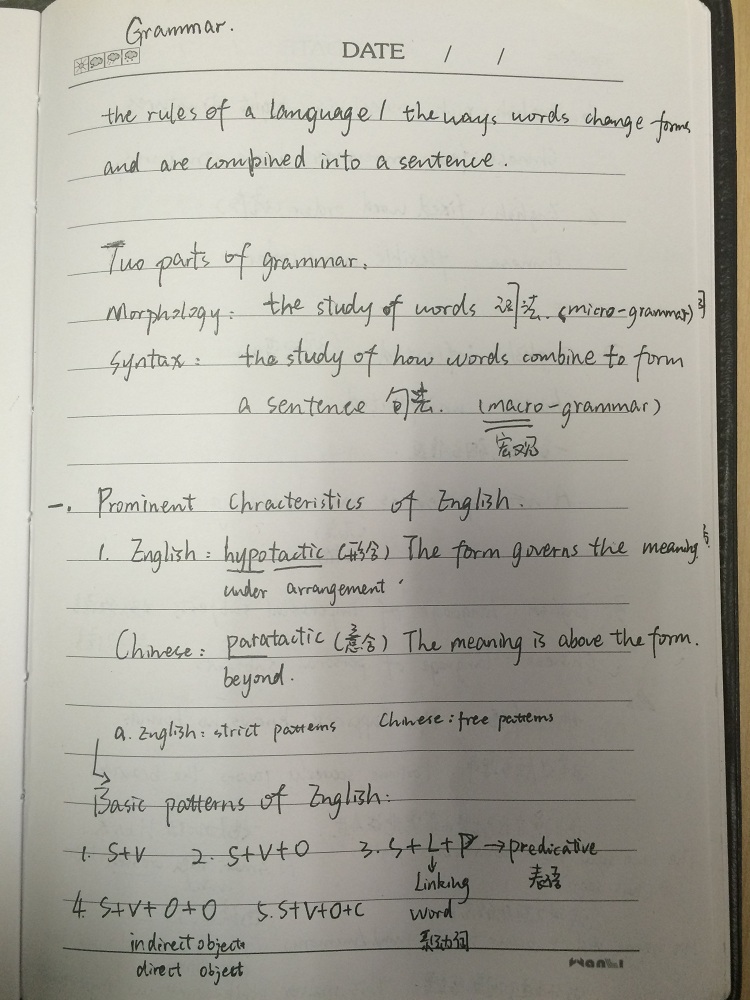 Grammar.
DATE / /
the rules of a language / the ways words change forms
and are combined into a sentence.
Two parts of grammar:
Morphology: the study of words 词法. (micro-grammar)
Syntax: the study of how words combine to form
a sentence 句法. (macro-grammar)
宏观
一. Prominent Chracteristics of English.
1. English: hypotactic (形合) The form governs the meaning
under arrangement
Chinese: paratactic (意合) The meaning is above the form.
beyond.
a. English: strict patterns Chinese: free patterns
Basic patterns of English:
1. S+V 2. S+V+O 3. S+L+P → predicative
Linking 表语
4. S+V+O+O 5. S+V+O+C word
indirect object 系动词
direct object